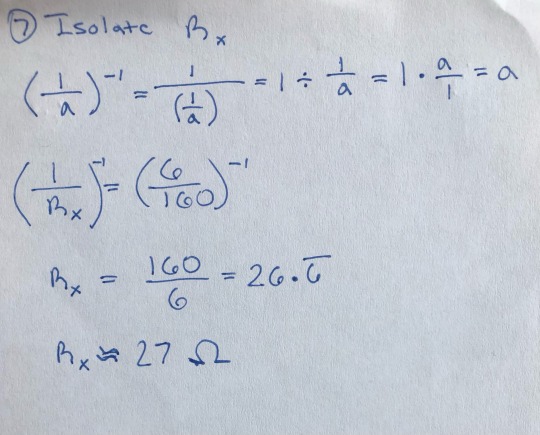 ⑦ Isolate Rₓ
(1/a)⁻¹ = 1/(1/a) = 1 ÷ 1/a = 1 · a/1 = a
(1/Rₓ)⁻¹ = (6/160)⁻¹
Rₓ = 160/6 = 26.6̅
Rₓ ≈ 27 Ω